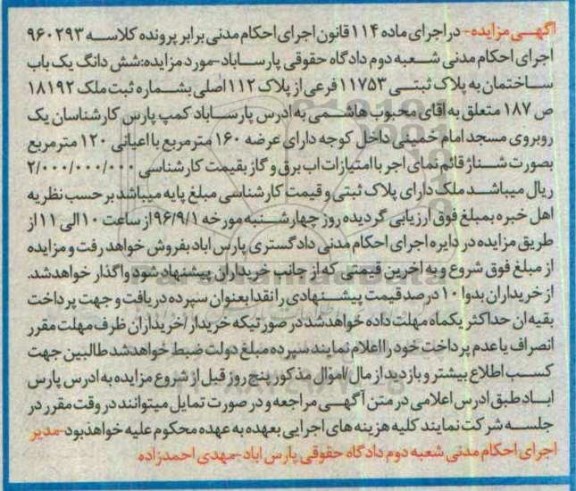 آگهـی مزایده- در اجرای ماده ۱۱۴ قانون اجرای احکام مدنی برابر پرونده کلاسه ۹۶۰۲۹۳
اجرای احکام مدنی شعبه دوم دادگاه حقوقی پارساباد-مورد مزایده:شش دانگ یک باب
ساختمان به پلاک ثبتی ۱۱۷۵۳ فرعی از پلاک ۱۱۲ اصلی بشماره ثبت ملک ۱۸۱۹۲
ص ۱۸۷ متعلق به آقای محبوب هاشمی به ادرس پارساباد کمپ پارس کارشناسان یک
روبروی مسجد امام خمینی داخل کوچه دارای عرضه ۱۶۰ مترمربع با اعیانی ۱۲۰ مترمربع
بصورت شناژ قائم نمای اجر با امتیازات اب برق و گاز بقیمت کارشناسی ۲/۰۰۰/۰۰۰/۰۰۰
ریال میباشد ملک دارای پلاک ثبتی و قیمت کارشناسی مبلغ پایه میباشد بر حسب نظریه
اهل خبره بمبلغ فوق ارزیابی گردیده روز چهارشنبه مورخه ۹۶/۹/۱ از ساعت ۱۰ الی ۱۱ از
طریق مزایده در دایره اجرای احکام مدنی دادگستری پارس اباد بفروش خواهد رفت و مزایده
از مبلغ فوق شروع و به اخرین قیمتی که از جانب خریداران پیشنهاد شود واگذار خواهد شد.
از خریداران بدوا ۱۰ درصد قیمت پیشنهادی را نقدا بعنوان سپرده دریافت و جهت پرداخت
بقیه ان حداکثر یکماه مهلت داده خواهد شد در صورتیکه خریدار/خریداران ظرف مهلت مقرر
انصراف یا عدم پرداخت خود را اعلام نمایند سپرده مبلغ دولت ضبط خواهد شد طالبین جهت
کسب اطلاع بیشتر و بازدید از مال/اموال مذکور پنج روز قبل از شروع مزایده به ادرس پارس
اباد طبق ادرس اعلامی در متن آگهی مراجعه و در صورت تمایل میتوانند در وقت مقرر در
جلسه شرکت نمایند کلیه هزینه های اجرایی بعهده به عهده محکوم علیه خواهد بود-مدیر
اجرای احکام مدنی شعبه دوم دادگاه حقوقی پارس اباد-مهدی احمدزاده